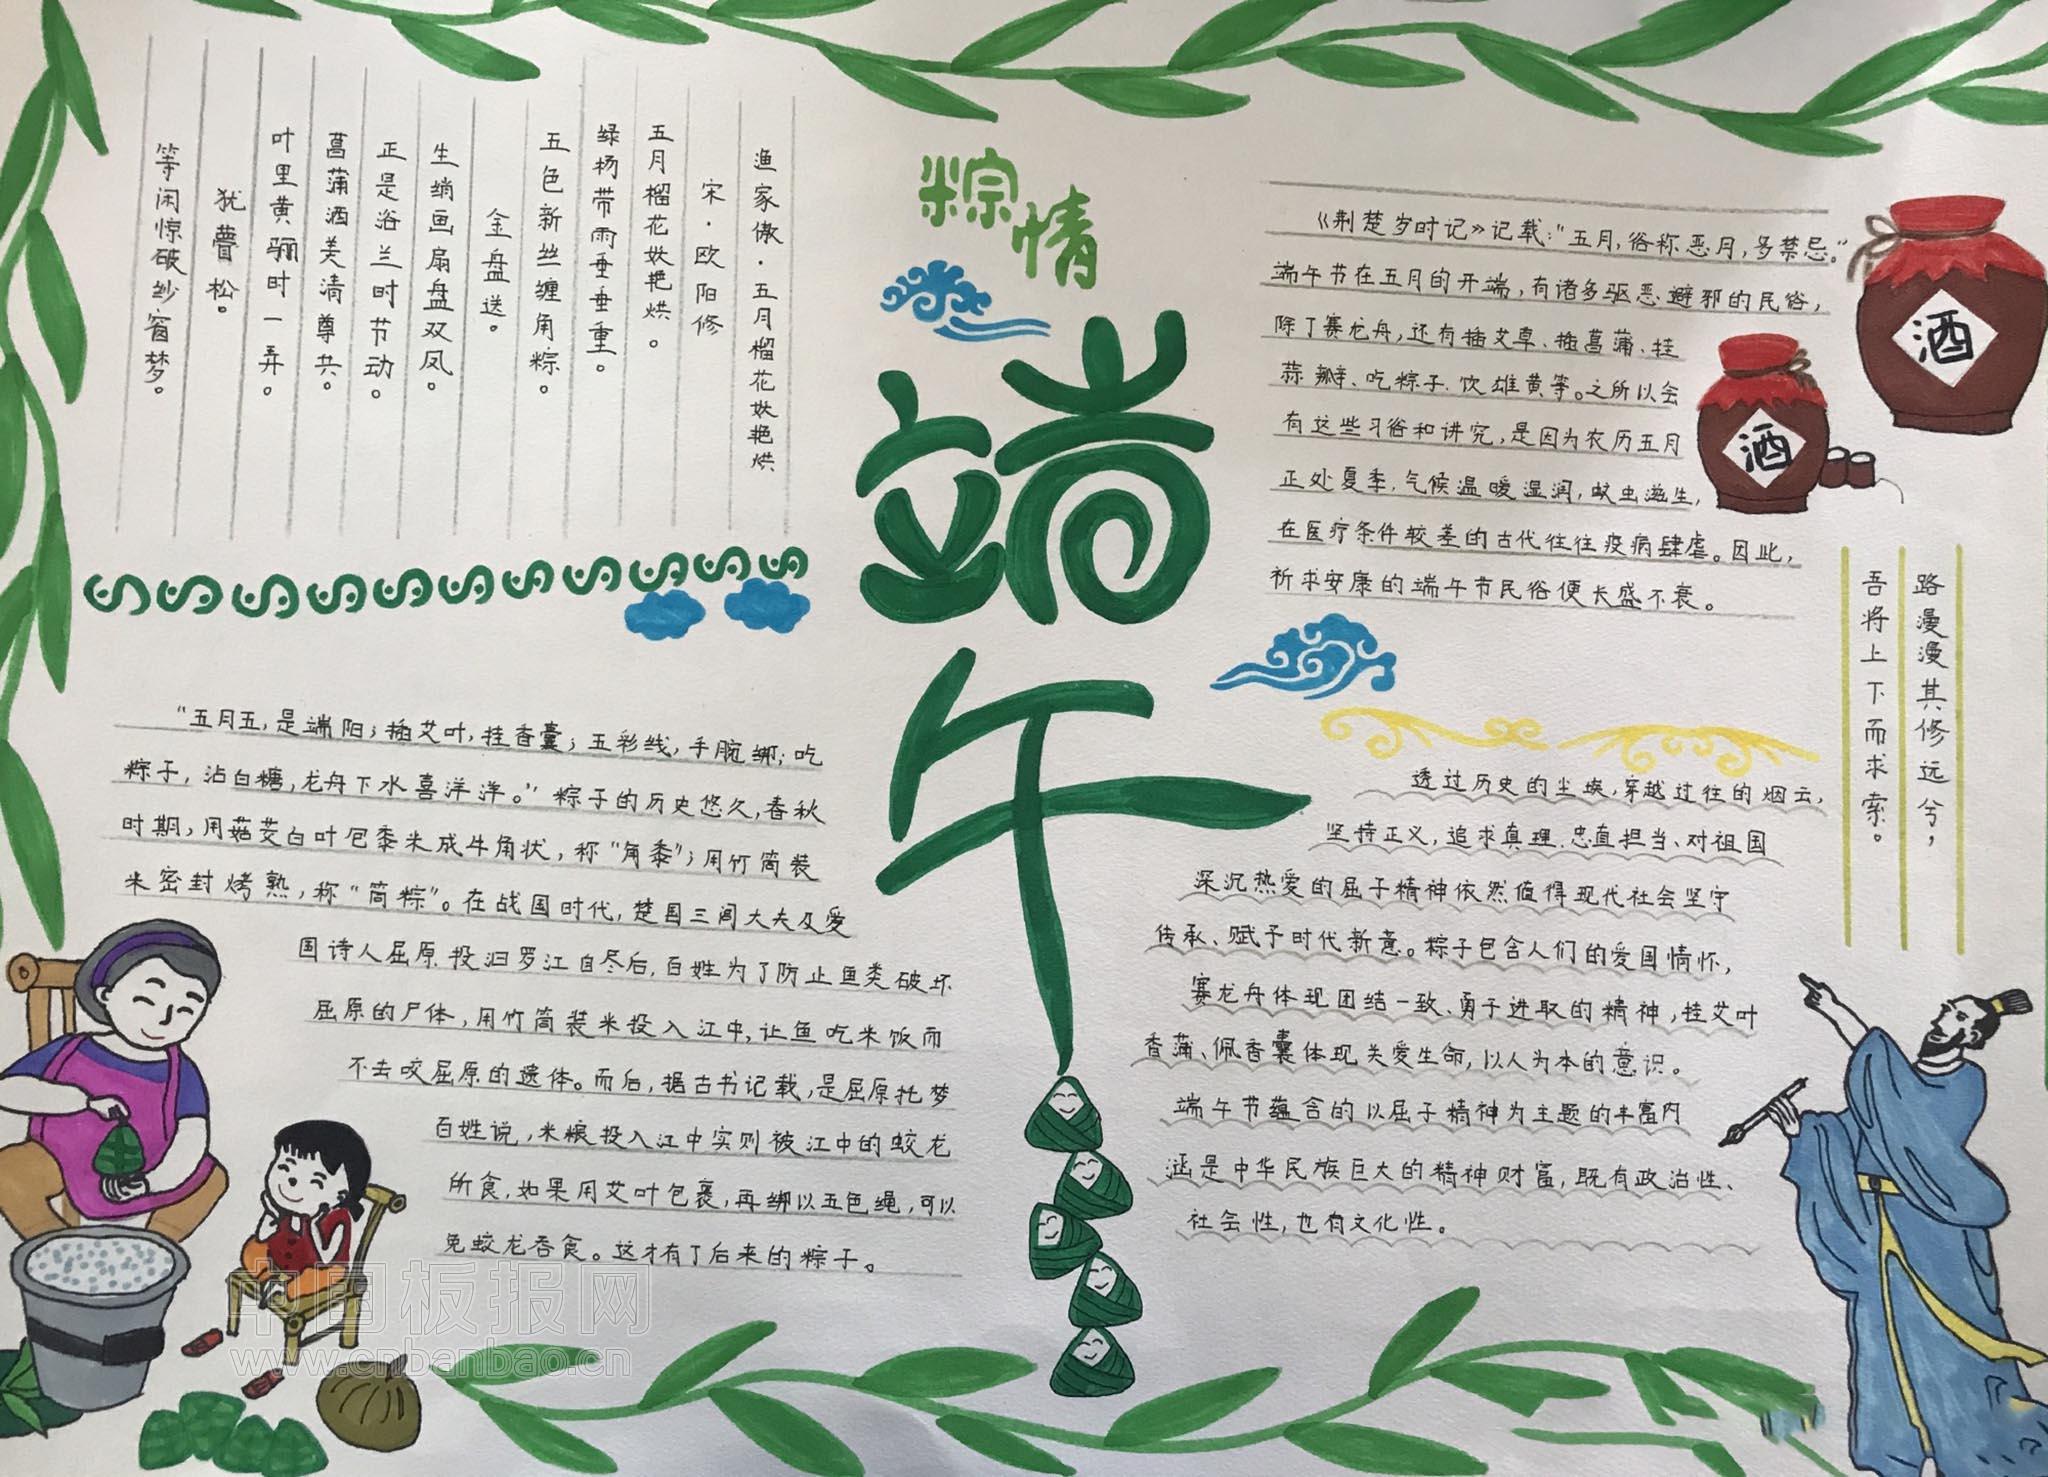 粽情
端午
渔家傲·五月榴花妖艳烘
宋·欧阳修
五月榴花妖艳烘。
绿杨带雨垂垂重。
五色新丝缠角粽。
金盘送。
生绡画扇盘双凤。
正是浴兰时节动。
菖蒲酒美清尊共。
叶里黄骊时一弄。
犹瞢松。
等闲惊破纱窗梦。
《荆楚岁时记》记载:"五月,俗称恶月,多禁忌。"
端午节在五月的开端,有诸多驱恶避邪的民俗,
除了赛龙舟,还有插艾草、插菖蒲、挂
蒜瓣、吃粽子、饮雄黄等。之所以会
有这些习俗和讲究,是因为农历五月
正处夏季,气候温暖湿润,蚊虫滋生,
在医疗条件较差的古代往往疫病肆虐。因此,
祈求安康的端午节民俗便长盛不衰。
酒
酒
路漫漫其修远兮,
吾将上下而求索。
"五月五,是端阳;插艾叶,挂香囊;五彩线,手腕绑;吃
粽子,沾白糖,龙舟下水喜洋洋。"粽子的历史悠久,春秋
时期,用菇茭白叶包黍米成牛角状,称"角黍";用竹筒装
米密封烤熟,称"筒粽"。在战国时代,楚国三闾大夫及爱
国诗人屈原投汩罗江自尽后,百姓为了防止鱼类破坏
屈原的尸体,用竹筒装米投入江中,让鱼吃米饭而
不去咬屈原的遗体。而后,据古书记载,是屈原托梦
百姓说,米粮投入江中实则被江中的蛟龙
所食,如果用艾叶包裹,再绑以五色绳,可以
免蛟龙吞食。这才有了后来的粽子。
透过历史的尘埃,穿越过往的烟云,
坚持正义,追求真理、忠直担当、对祖国
深沉热爱的屈子精神依然值得现代社会坚守
传承、赋予时代新意。粽子包含人们的爱国情怀,
赛龙舟体现团结一致、勇于进取的精神,挂艾叶
香蒲、佩香囊体现关爱生命,以人为本的意识。
端午节蕴含的以屈子精神为主题的丰富内
涵是中华民族巨大的精神财富,既有政治性、
社会性,也有文化性。
中国板报网
www.cnbanbao.cn